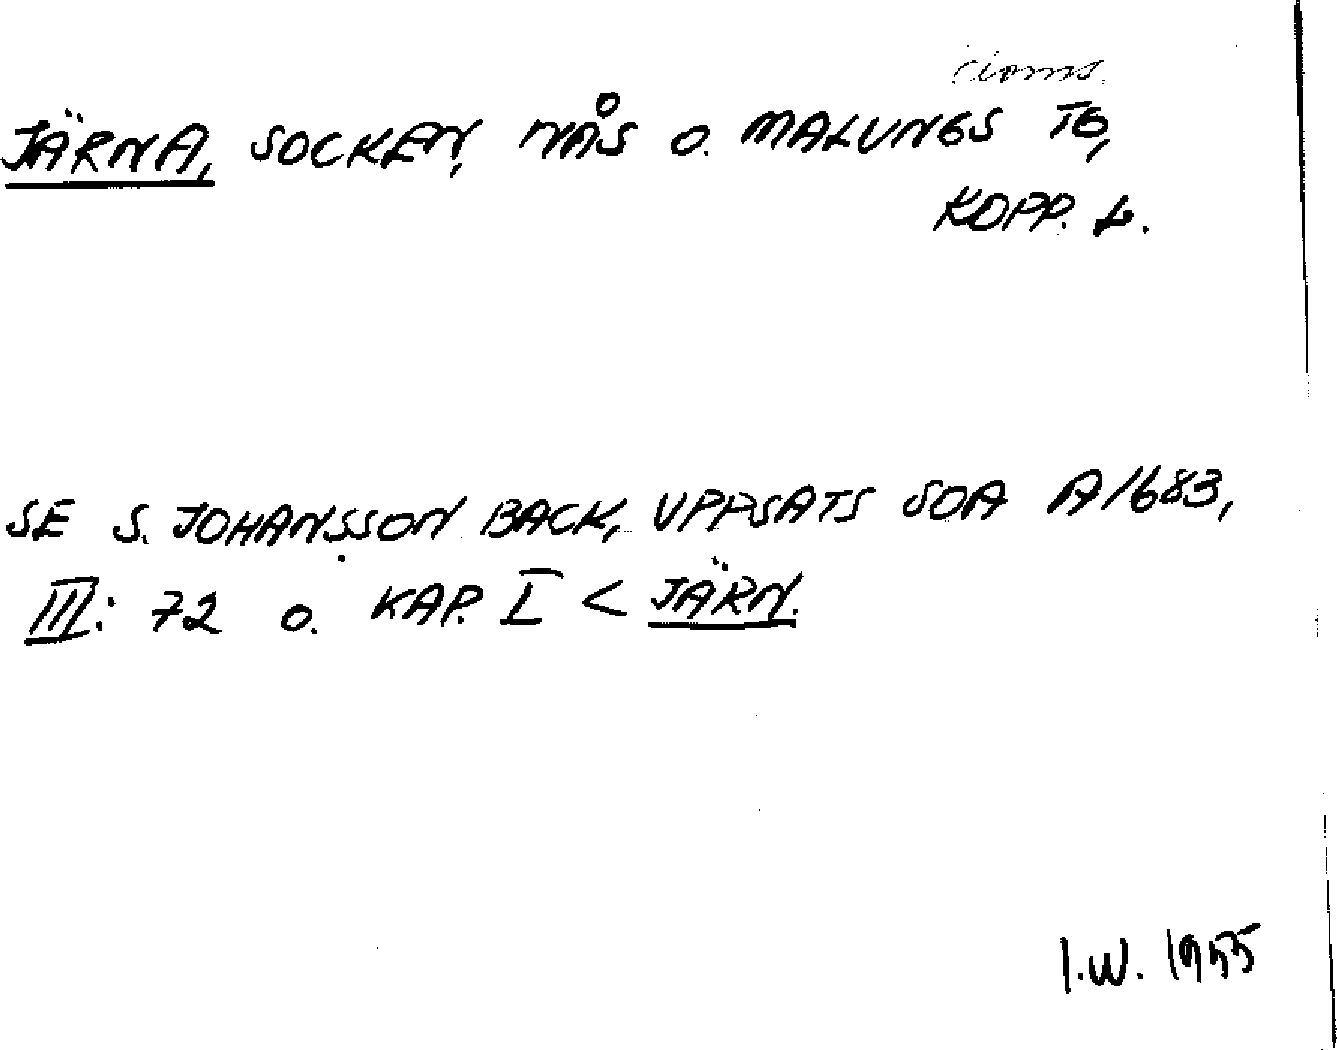 JÄRNA, SOCKEN, NÅS O. MALUNGS TG,
KOPP. L.
SE S. JOHANSSON BACK, UPPSATS SOA A1683,
III: 72 O. KAP. I < JÄRN.
I.W. 1955